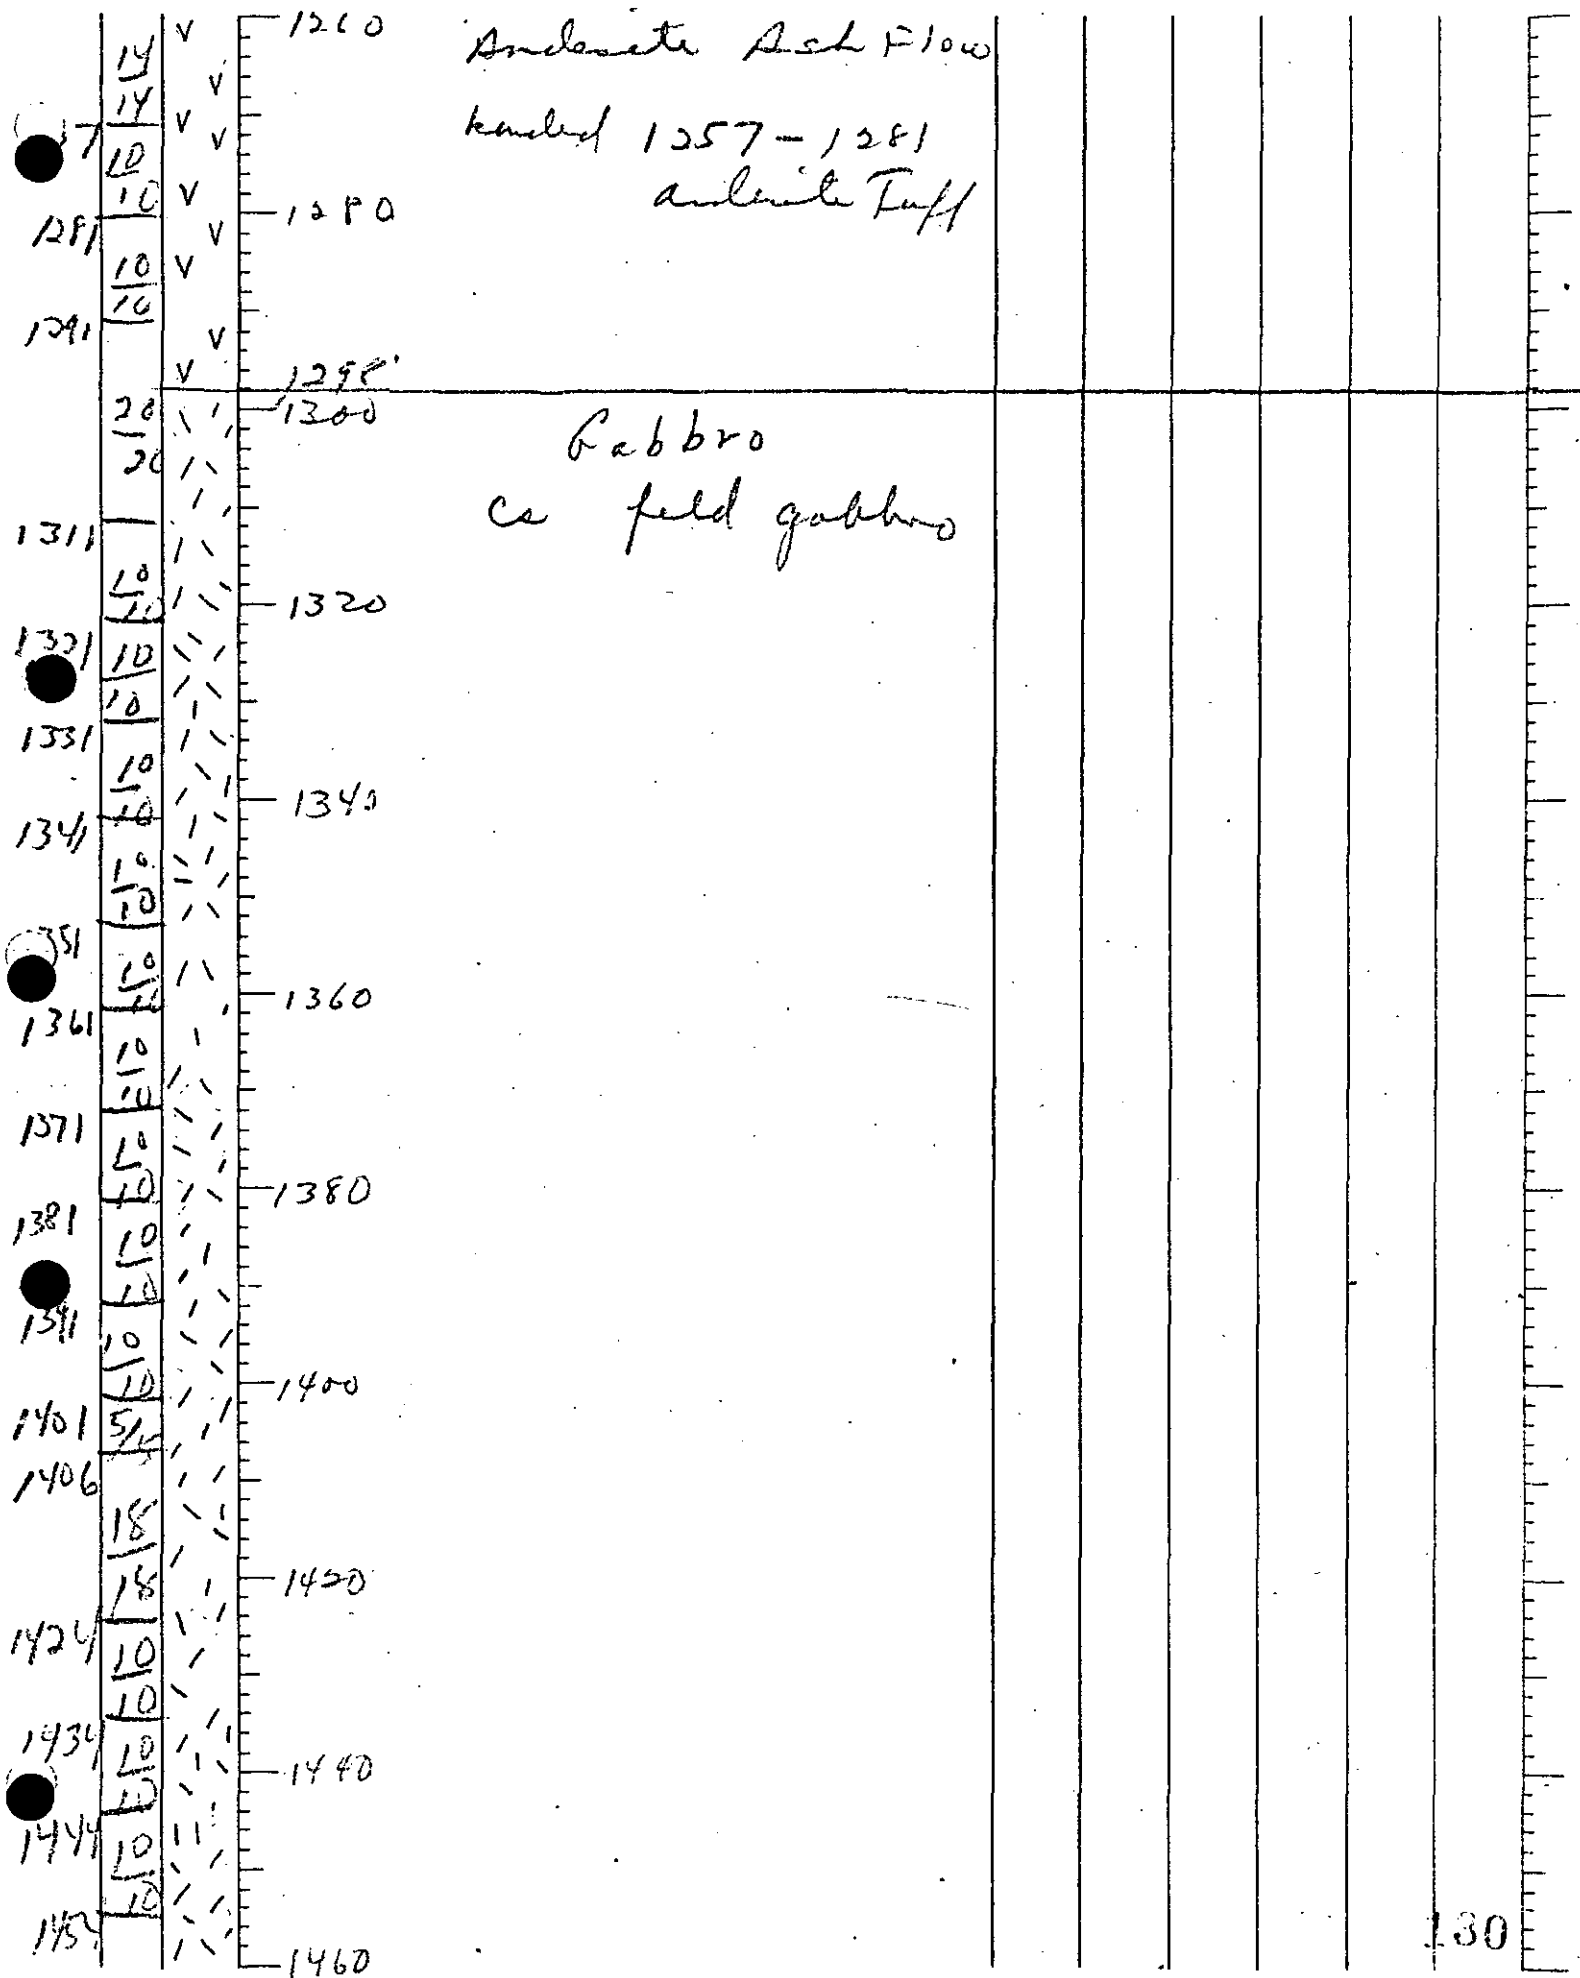 1260
Andesite Ash Flow
14
14
banded 1257-1281
10
10
andesite Tuff
1280
1281
10
10
1291
1298'
1300
20
20
Gabbro
cs feld gabbro
1311
10
10
1320
1321
10
10
1331
10
10
1340
1341
10
10
1351
10
10
1360
1361
10
10
1371
10
10
1380
1381
10
10
1391
10
10
1400
1401
5/5
1406
18
18
1420
1424
10
10
1434
10
10
1440
1444
10
10
1454
130
1460